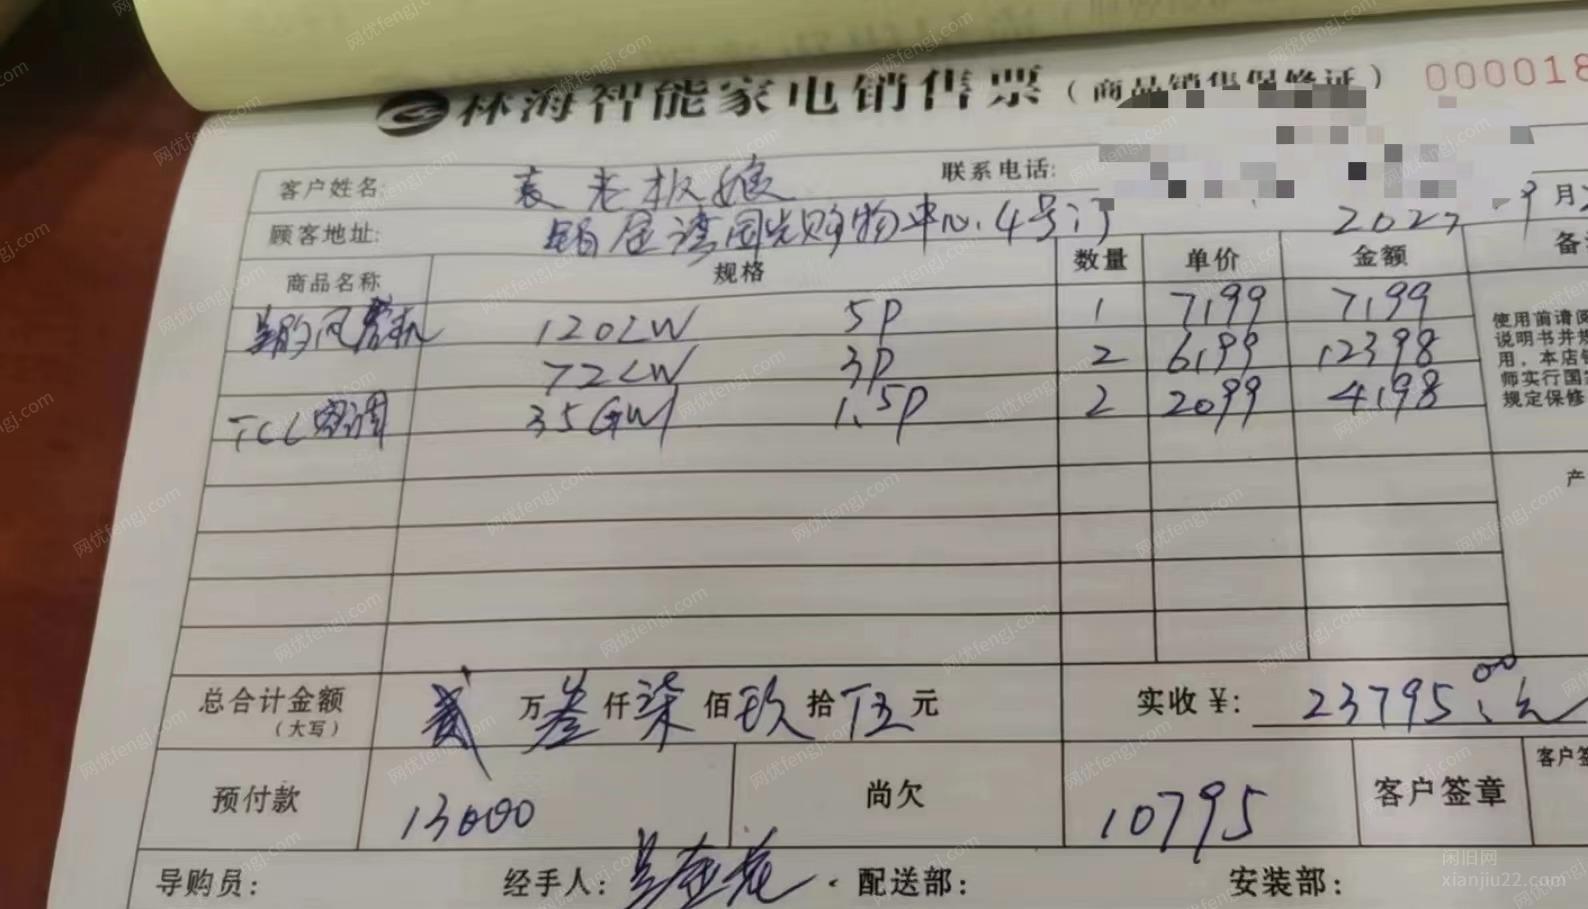 林海智能家电销售票（商品销售保修证） 0000018
客户姓名: 袁老板娘 联系电话:
顾客地址: 国光购物中心.4号门 202 9月
商品名称 规格 数量 单价 金额 备
风管机 120LW 5P 1 7199 7199
72LW 3P 2 6199 12398
TCL空调 35GW 1.5P 2 2099 4198
使用前请阅
说明书并规
用，本店销
师实行国家
规定保修
产
总合计金额（大写） 贰万叁仟柒佰玖拾伍元 实收¥: 23795.00元
预付款 13000 尚欠 10795 客户签章 客户签
导购员: 经手人: 配送部: 安装部:
闲旧网
xianjiu22.com
网优fengj.com